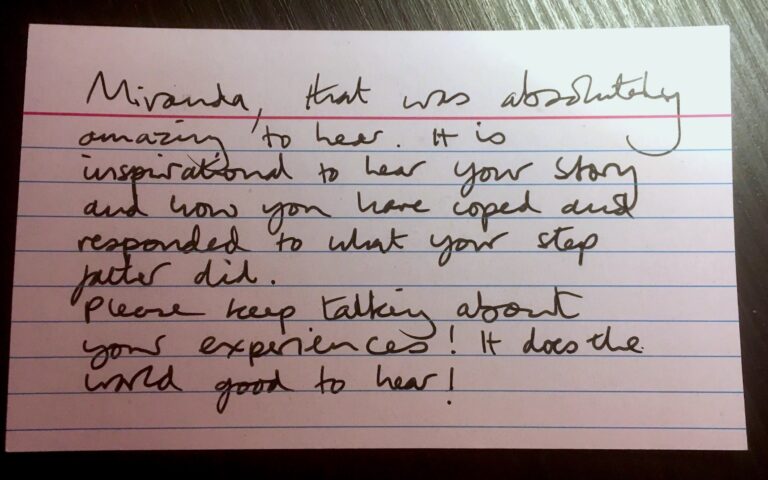 Miranda, that was absolutely
amazing to hear. It is
inspirational to hear your story
and how you have coped and
responded to what your step
father did.
Please keep talking about
your experiences! It does the
world good to hear!